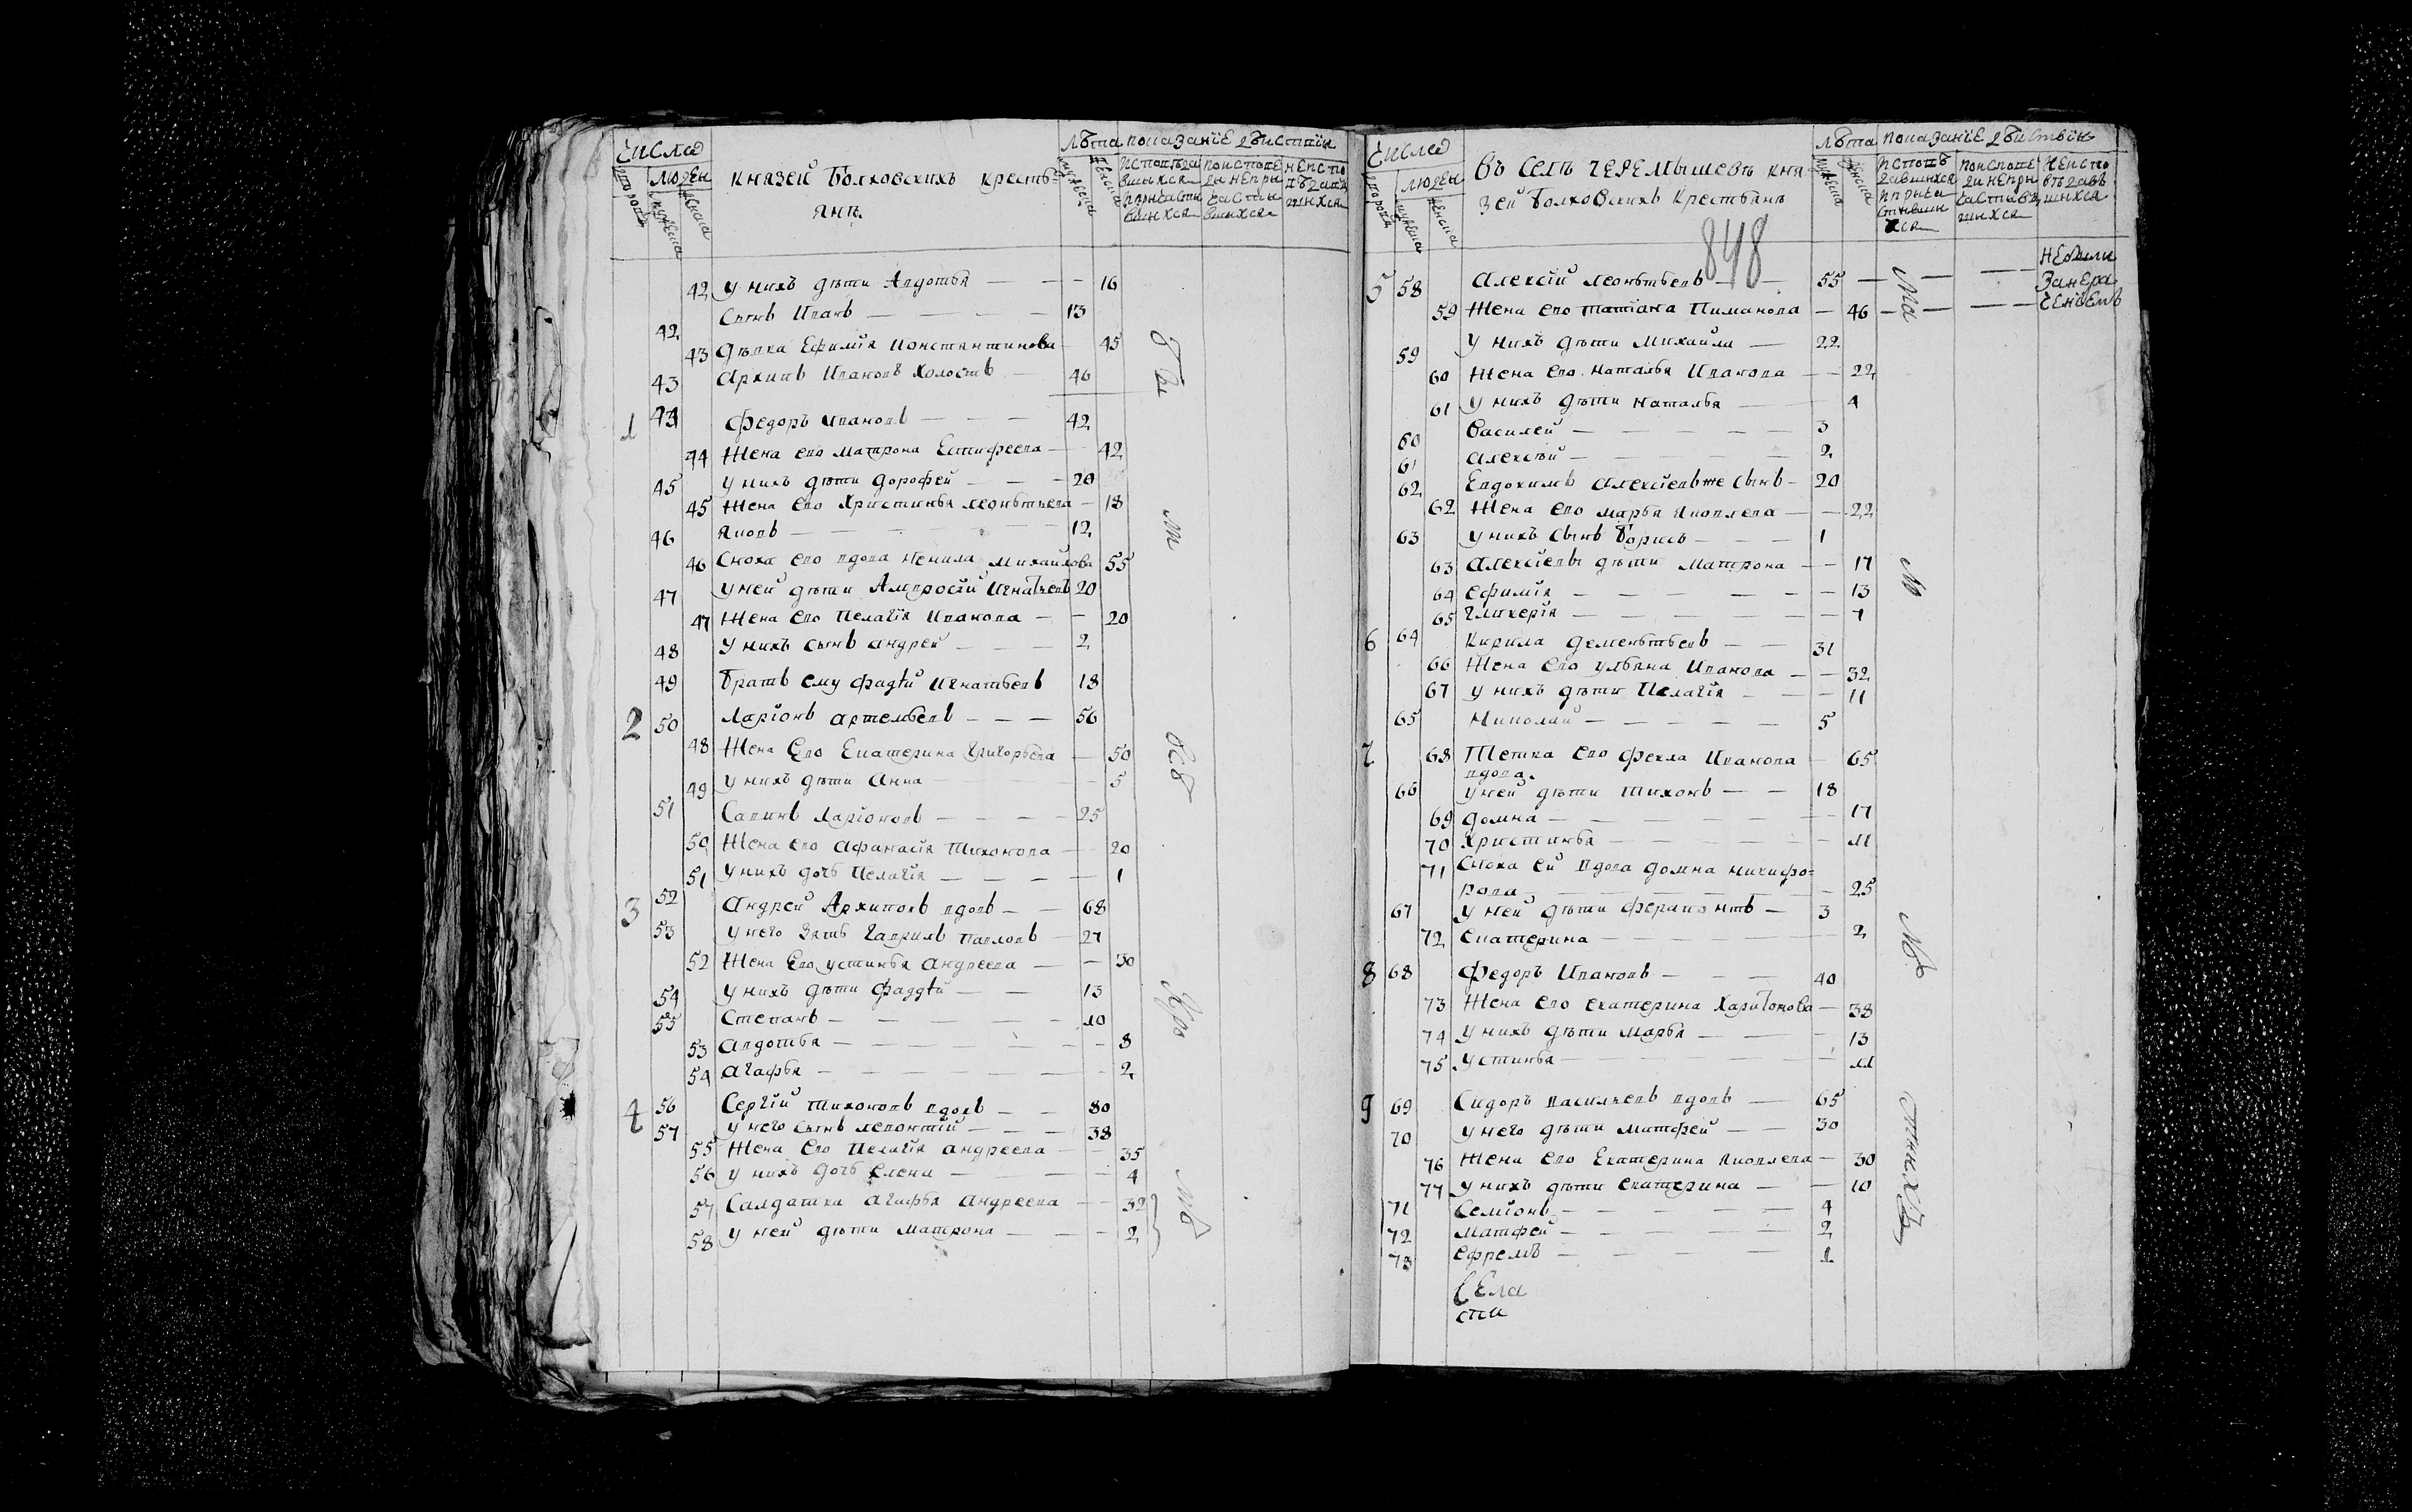 Числа
Люден
князей Болховскихъ кресть-
янъ
Лѣта показанїе дѣиствїи
42 у нихъ дѣти Авдотья — — — 16
42 Сынъ Иванъ — — — 13
43 Дѣвка Ефимїя Константинова 45
43 Архипъ Ивановъ холостъ — 46
1 44 Федоръ Ивановъ — — — 42
44 Жена ево Матрона Естифеева — 42
45 у нихъ дѣти Дорофей — — — 20
45 Жена ево Христинья Леонътьева — 18
46 Яковъ — — — 12
46 Сноха ево вдова Ненила Михайлова 55
47 у ней дѣти Амвросїй Игнатьевъ 20
47 Жена ево Пелагїя Иванова — — 20
48 у нихъ сынъ Андрей — — — 2
49 Братъ ему Фадѣй Игнатьевъ 18
2 50 Ларїонъ Артемьевъ — — — 56
48 Жена Ево Екатерина Григорьева — 50
49 у нихъ дѣти Анна — 5
51 Савинъ Ларїоновъ — — — — 25
50 Жена ево Афанасїя Тихонова — 20
51 у нихъ дочь Пелагїя — — — — 1
3 52 Андрей Архиповъ вдовъ — — 68
53 у него зять Гаврилъ Павловъ — 27
52 Жена Ево Устинья Андреева — — 30
54 у нихъ дѣти Фаддѣй — — 13
55 Степанъ — — — — 10
53 Авдотья — — — — 8
54 Агафья — — — — 2
4 56 Сергїй Тихоновъ вдовъ — — 80
57 у него сынъ Леонтїй — — — 38
55 Жена Ево Пелагїя Андреева — — 35
56 у нихъ дочь Елена — — — 4
57 Салдатка Агафья Андреева — — 32
58 у ней дѣти Матрона — — — 2
Числа
Люден
въ селѣ Черемышевѣ кня
зей Болховскихъ Крестьянъ
848
Лѣта показанїе дѣиствїи
Небыли
За нера
ченїемъ
5 58 Алексїй Леонътьевъ — — 55 — — —
59 Жена ево Татїана Пиманова — 46 — — — —
59 у нихъ дѣти Михайла — 22
60 Жена ево Наталья Иванова — — 22
61 у нихъ дѣти Наталья — 4
60 Василей — — — — — 3
61 Алексѣй — — — — 2
62 Евдокимъ Алексїевъ же сынъ — 20
62 Жена ево Марья Яковлева — — 22
63 у нихъ сынъ Борисъ — — — 1
63 Алексїевы дѣти Матрона — — 17
64 Ефимїя — — — — — 13
65 Гликерїя — — — — 7
6 64 Кирила Деменътьевъ — — 31
66 Жена ево Ульяна Иванова — — 32
67 у нихъ дѣти Пелагїя — — — 11
65 Николай — — — — — 5
7 68 Тетка ево Фекла Иванова — 65
вдова.
66 у ней дѣти Тихонъ — — 18
69 Домна — — — — — 17
70 Христинья — — — — 11
71 Сноха ей вдова Домна Никифо=
рова — — — — — 25
67 у ней дѣти Ферапонтъ — 3
72 Екатерина — — — — 2
8 68 Федоръ Ивановъ — — — 40
73 Жена ево Екатерина Харитонова — 38
74 у нихъ дѣти Марья — — — 13
75 Устинья — — — — — 11
9 69 Сидоръ Васильевъ вдовъ — 65
70 у него дѣти Матфей — — 30
76 Жена ево Екатерина Яковлева — 30
77 у нихъ дѣти Екатерина — — 10
71 Семїонъ — — — — — 4
72 Матфей — — — — — 2
73 Ефремъ — — — — 1
Села